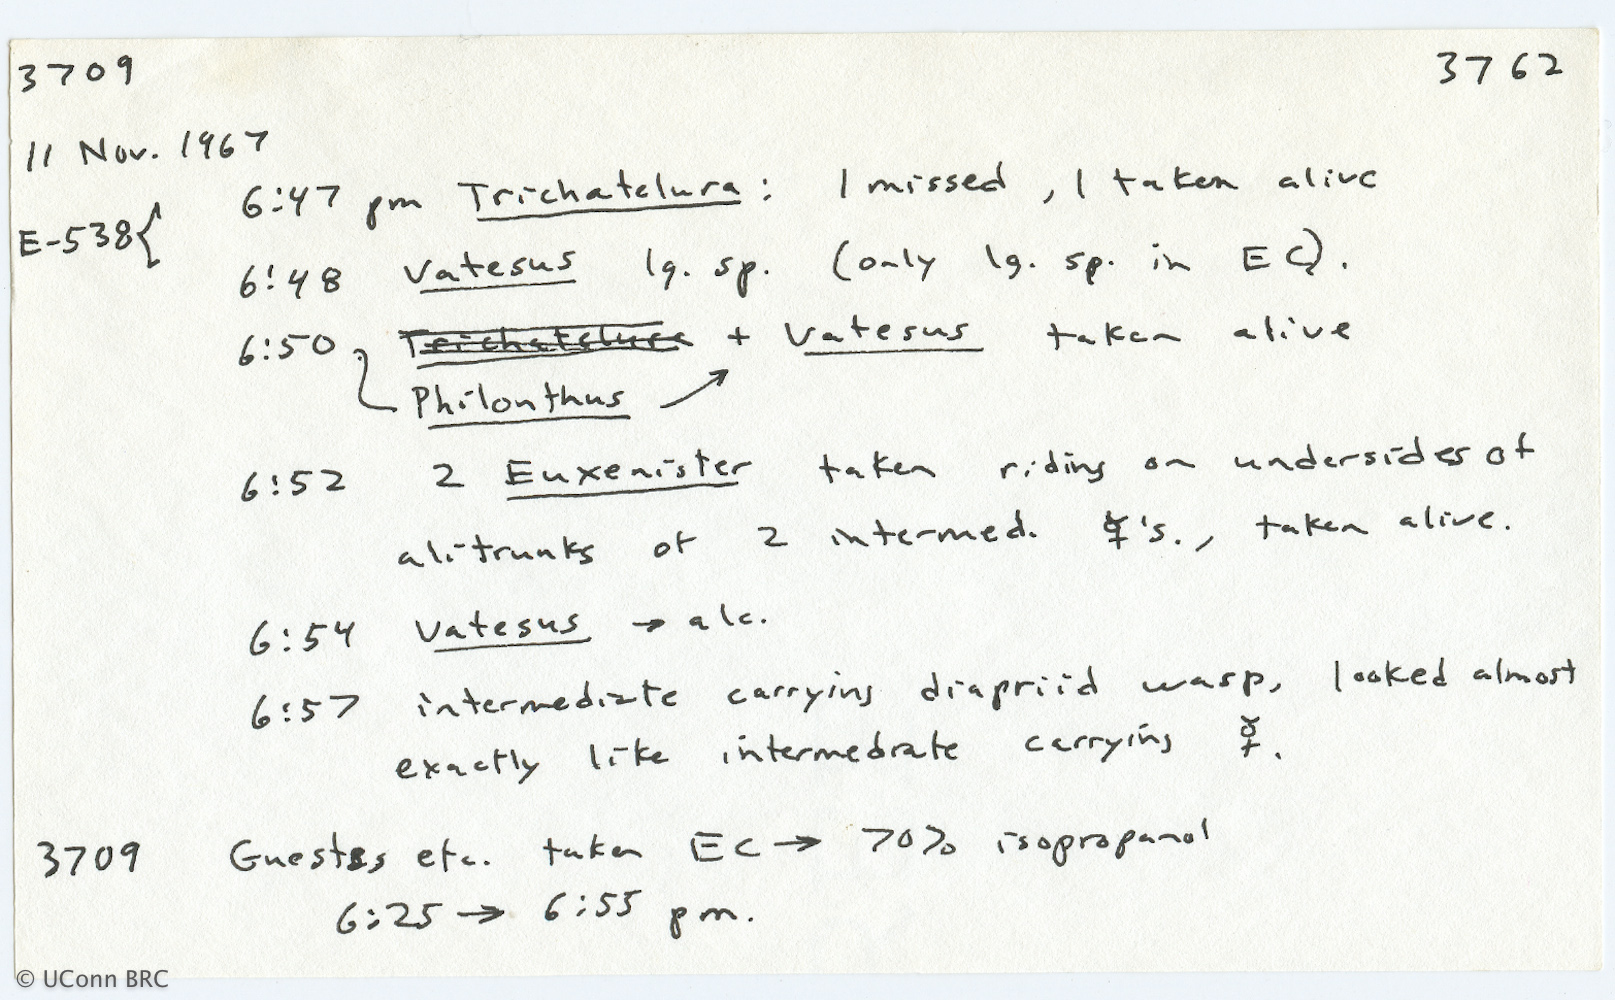 3709 3762
11 Nov. 1967
6:47 pm Trichatelura: 1 missed, 1 taken alive
E-538{
6:48 Vatesus lg. sp. (only lg. sp. in EC).
6:50 Trichatelura + Vatesus taken alive
Philonthus
6:52 2 Euxenister taken riding on undersides of
alitrunks of 2 intermed. ☿'s., taken alive.
6:54 Vatesus → alc.
6:57 intermediate carrying diapriid wasp, looked almost
exactly like intermediate carrying ☿.
3709 Guests etc. taken EC → 70% isopropanol
6:25 → 6:55 pm.
© UConn BRC